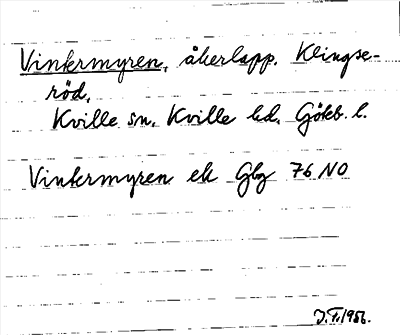 Vinkermyren, åkerlapp. Klingse-
röd,
Kville sn, Kville hd. Göteb. l.
Vinkermyren ek Gbg 76 NO
1956.